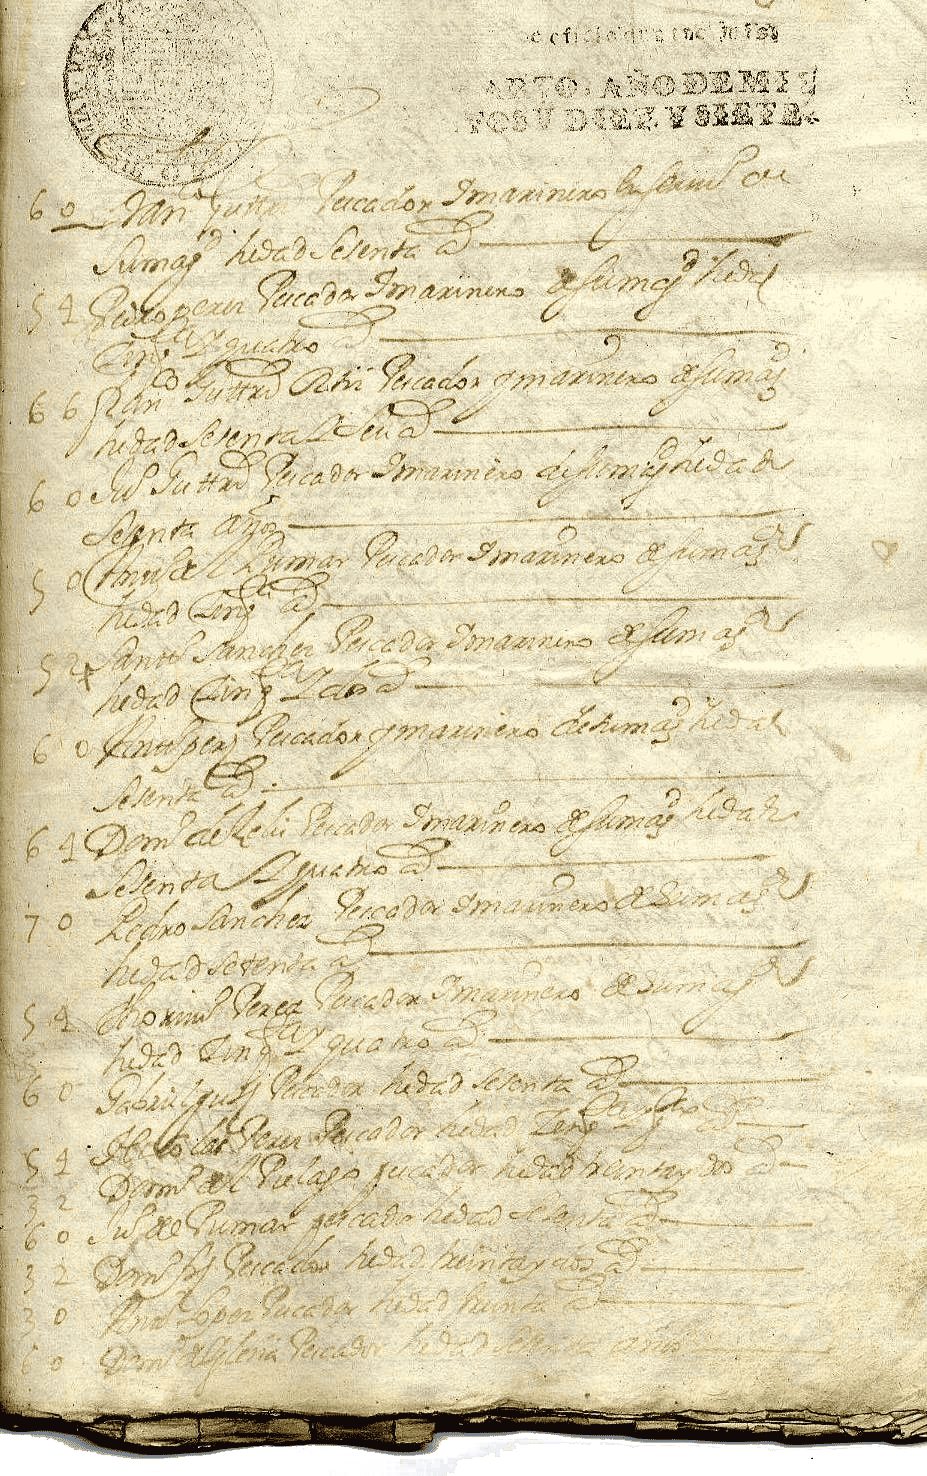 ARTO, AÑO DE MIL
TOS Y DIEZ, Y SIETE.
60 Franco Guttrz Pescador Y marinero
Sumagd hedad Sesenta ad
54 Pedro perez Pescador Y marinero de Sumagd hedad
Cinqta Y quatro
66 Franco Guttrz Pescador y marinero de Sumagd
hedad Sesenta Y Seis ad
60 Jun Guttrz Pescador Y marinero de Sumagd hedad
Sesenta años
50 de Pumar Pescador Y marinero de Sumagd
hedad Cinqta ad
52 Santos Sanchez Pescador Y marinero de Sumagd
hedad Cinqta Y dos ad
60 perez Pescador y marinero de Sumagd hedad
Sesenta ad
64 Domo de Pescador Y marinero de Sumagd hedad
Sesenta Y quatro ad
70 Pedro Sanchez Pescador Y marinero de Sumagd
hedad Setenta ad
54 Perez Pescador Y marinero de Sumagd
hedad Zinqta Y quatro ad
60 Gabriel Pescador hedad Sesenta ad
54 Nicolas Perez Pescador hedad Zinqta y qtro ad
32 Domo del Pielago pescador hedad treinta y dos ad
60 Jun de Pumar pescador hedad Sesenta ad
32 Domo Pescador hedad treinta y dos ad
30 Lopez Pescador hedad treinta ad
60 Domo de Yglesia Pescador hedad Sesenta años